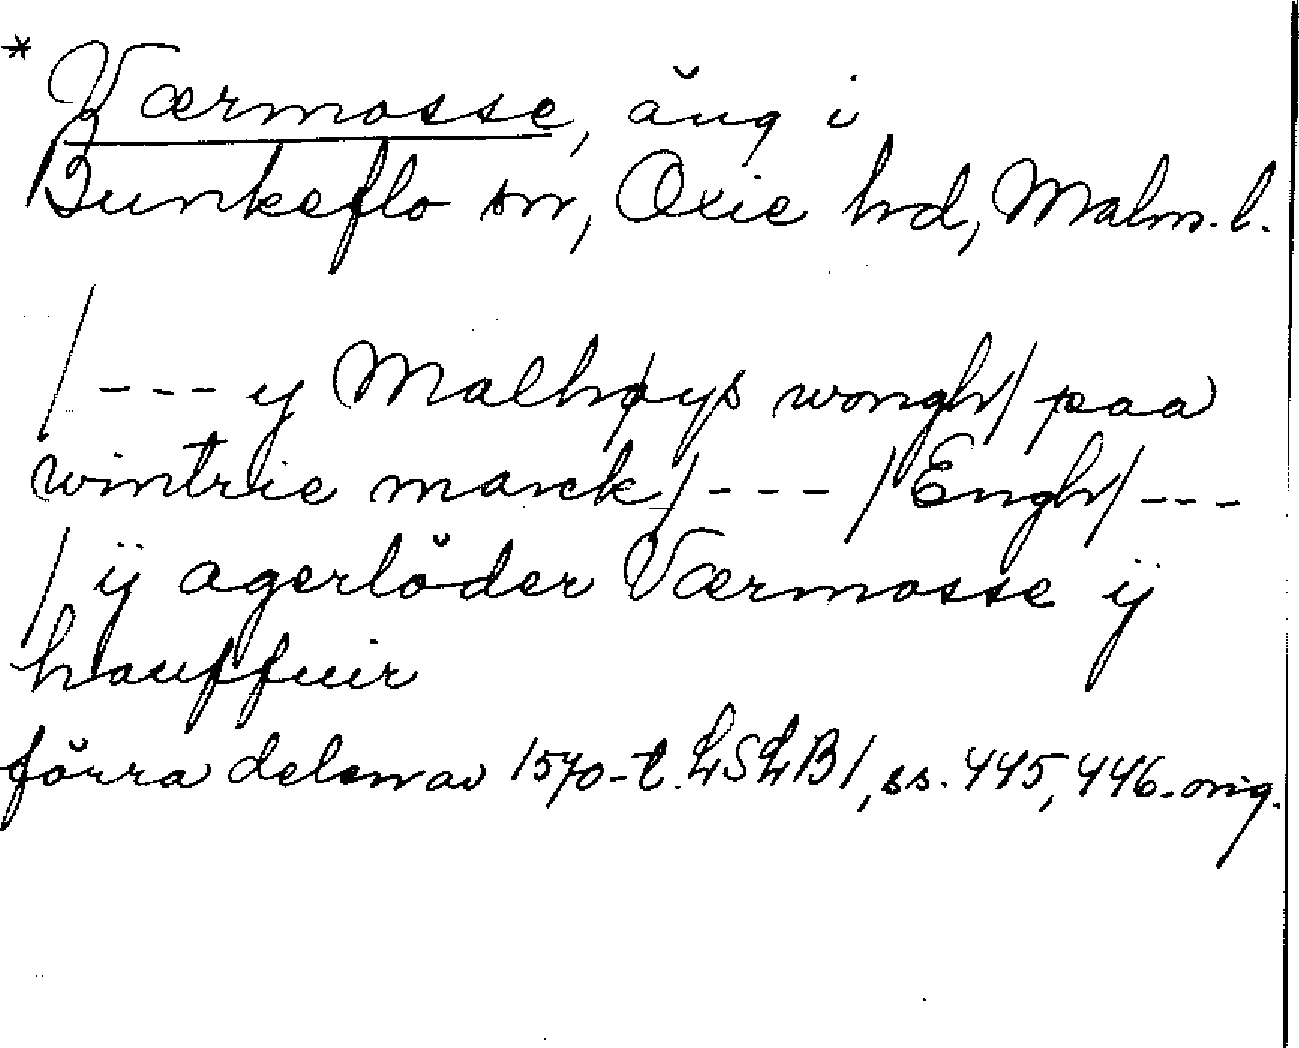 * Værmosse, äng i
Bunkeflo sn, Oxie hd, Malm. l.
/--- y Malhøys wongh/ paa
wintrie marck/ --- /Engh/ ---
/ ij agerlöder Værmosse ij
hauffuir
förra delen av 1570-t. LSLB1, ss. 445, 446. orig.